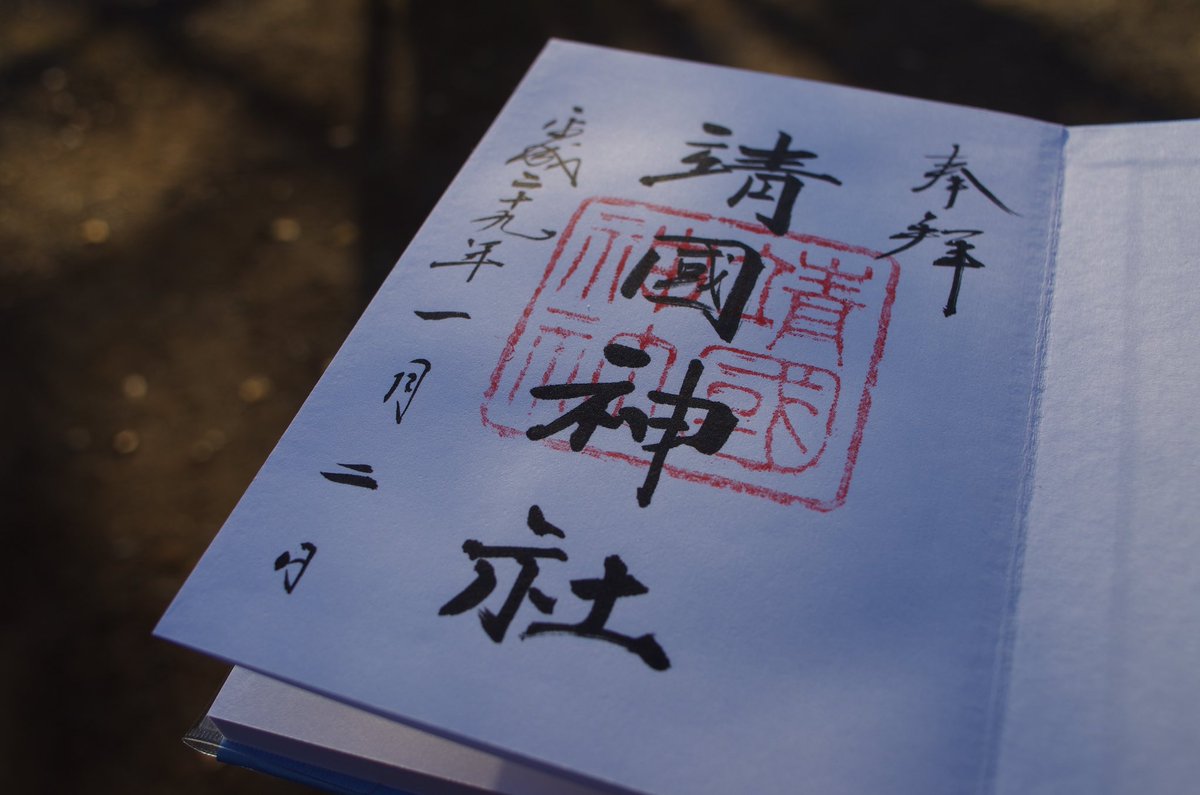 奉拜
靖國神社
靖國神社
平成二十九年一月二日